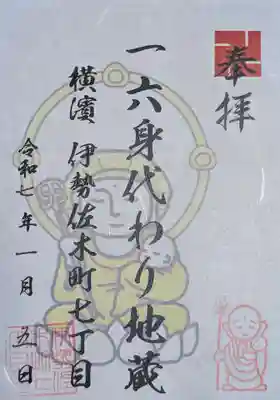 奉拝
一六身代わり地蔵
横濱 伊勢佐木町七丁目
令和七年一月五日